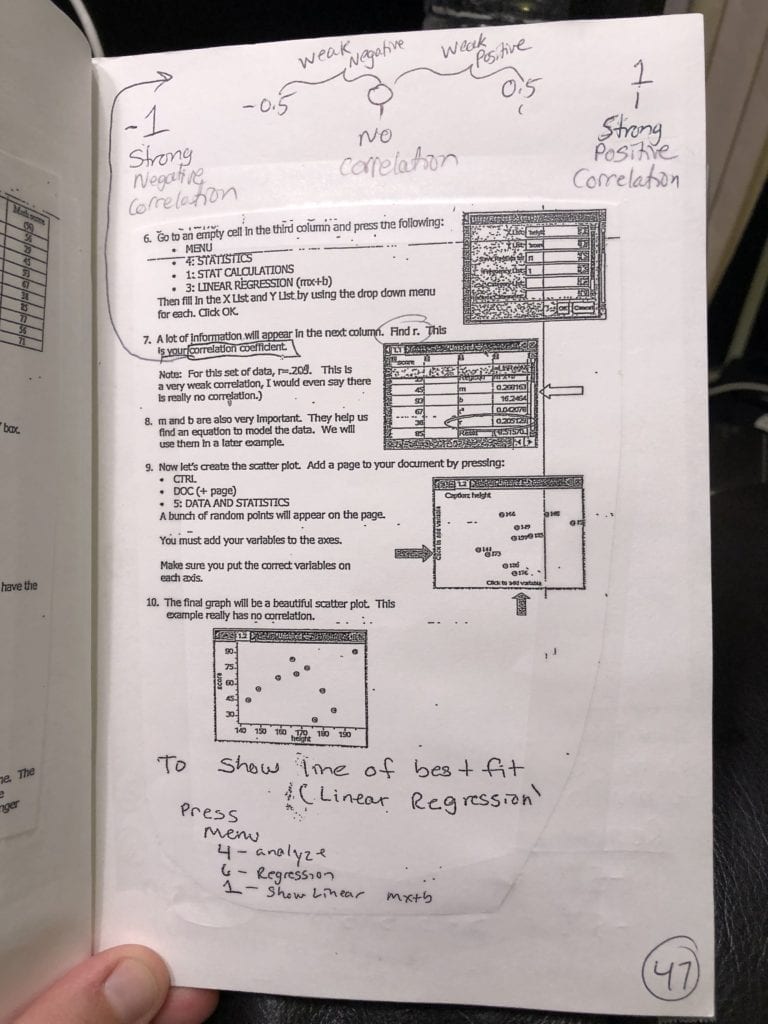 weak Negative
weak Positive
-1
-0.5
0
0.5
1
Strong Negative Correlation
NO Correlation
Strong Positive Correlation
6. Go to an empty cell in the third column and press the following:
• MENU
• 4: STATISTICS
• 1: STAT CALCULATIONS
• 3: LINEAR REGRESSION (mx+b)
Then fill in the X List and Y List by using the drop down menu
for each. Click OK.
7. A lot of information will appear in the next column. Find r. This
is your correlation coefficient.
Note: For this set of data, r=.205. This is
a very weak correlation, I would even say there
is really no correlation.)
8. m and b are also very important. They help us
find an equation to model the data. We will
use them in a later example.
score
45
m
0.298163
93
b
16.2464
67
r²
0.042078
38
r
0.205129
85
9. Now let's create the scatter plot. Add a page to your document by pressing:
• CTRL
• DOC (+ page)
• 5: DATA AND STATISTICS
A bunch of random points will appear on the page.
You must add your variables to the axes.
Make sure you put the correct variables on
each axis.
1.2
Caption: height
Click to add variable
Click to add variable
10. The final graph will be a beautiful scatter plot. This
example really has no correlation.
1.2
90
75
60
45
30
score
140 150 160 170 180 190
height
To Show line of best fit
(Linear Regression)
Press
Menu
4 - analyze
6 - Regression
1 - Show Linear mx+b
47
Math score
box.
have the
ne. The
nger